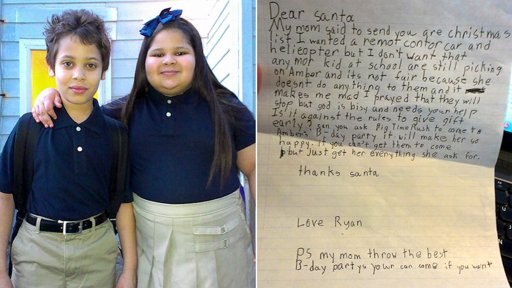 Dear santa
My mom said to send you are christmas
list I wanted a remot contor car and
helicopter but I don't want that
any mor kid at school are still picking
on Ambor and its not fair because she
doesnt do anything to them and it
makes me mad I prayed that they will
stop but god is bisy and needs your help
Is it against the rules to give gift
early? Can you ask Big Time Rush to come to
Amber's B-day party it will make her so
happy. If you can't get them to come
but just get her everything she ask for.
thanks santa
Love Ryan
PS my mom throw the best
B-day partys your can come if you want